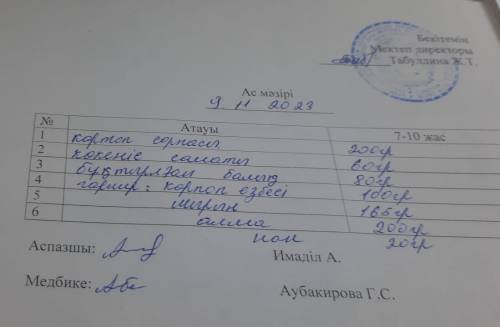 Бекітемін
Мектеп директоры
Табуллина Ж.Т.
Ас мәзірі
9 11 2023
№ Атауы 7-10 жас
1 картоп сорпасы 200гр
2 көкөніс салаты 60гр
3 бұқтырлған балық 80гр
4 гарнир: картоп езбесі 100гр
5 165гр
6 алма 200гр
нан 20гр
Аспазшы: Имаділ А.
Медбике: Аубакирова Г.С.